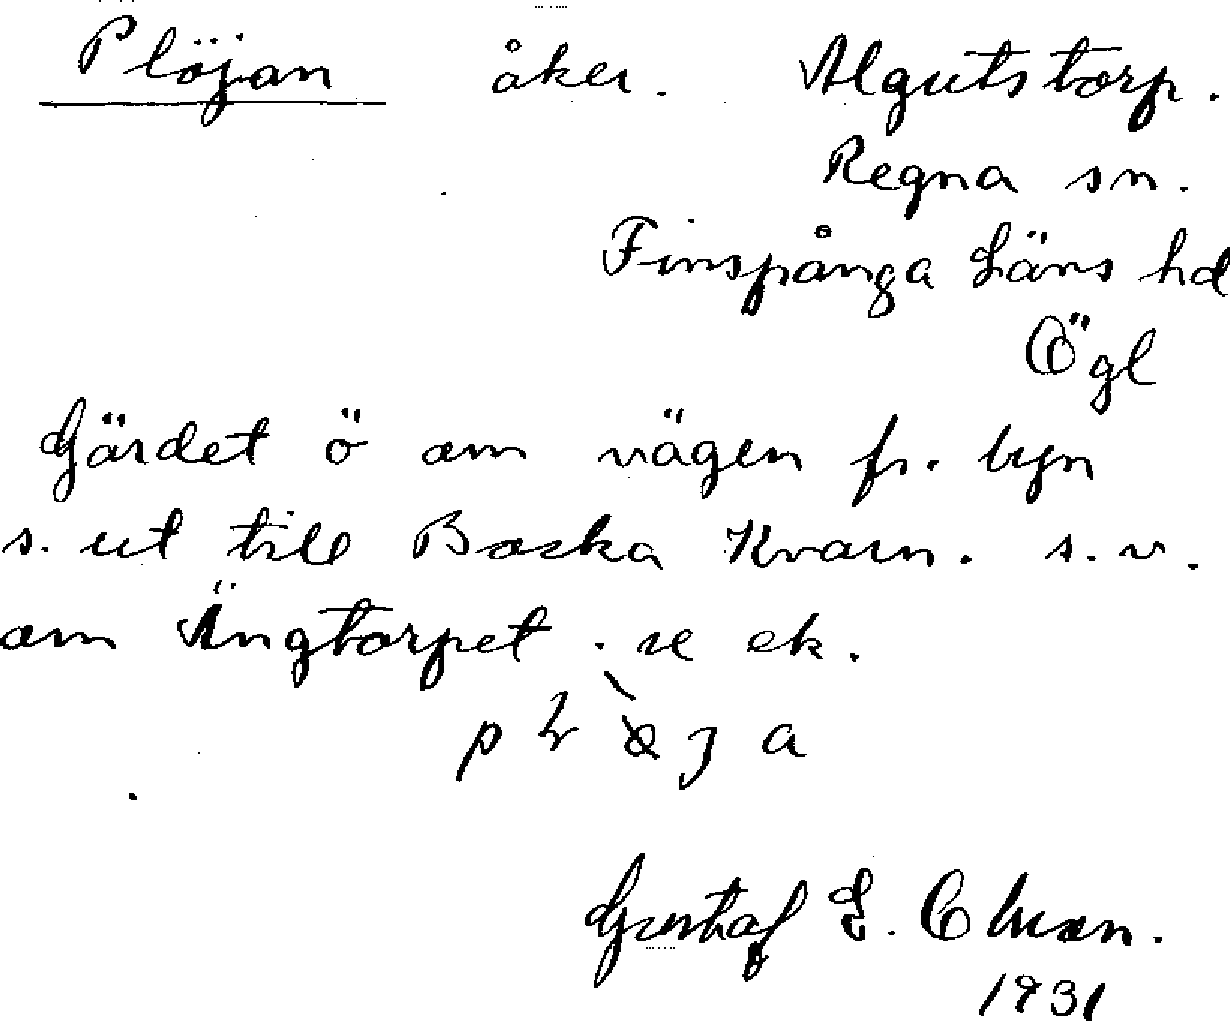 Plöjan åker. Algutstorp.
Regna sn.
Finspånga Läns hd
Ögl
Gärdet ö om vägen fr. byn
s. ut till Boska Kvarn. s.v.
om Ängtorpet. se ek.
Gustaf E. Olsson.
1931